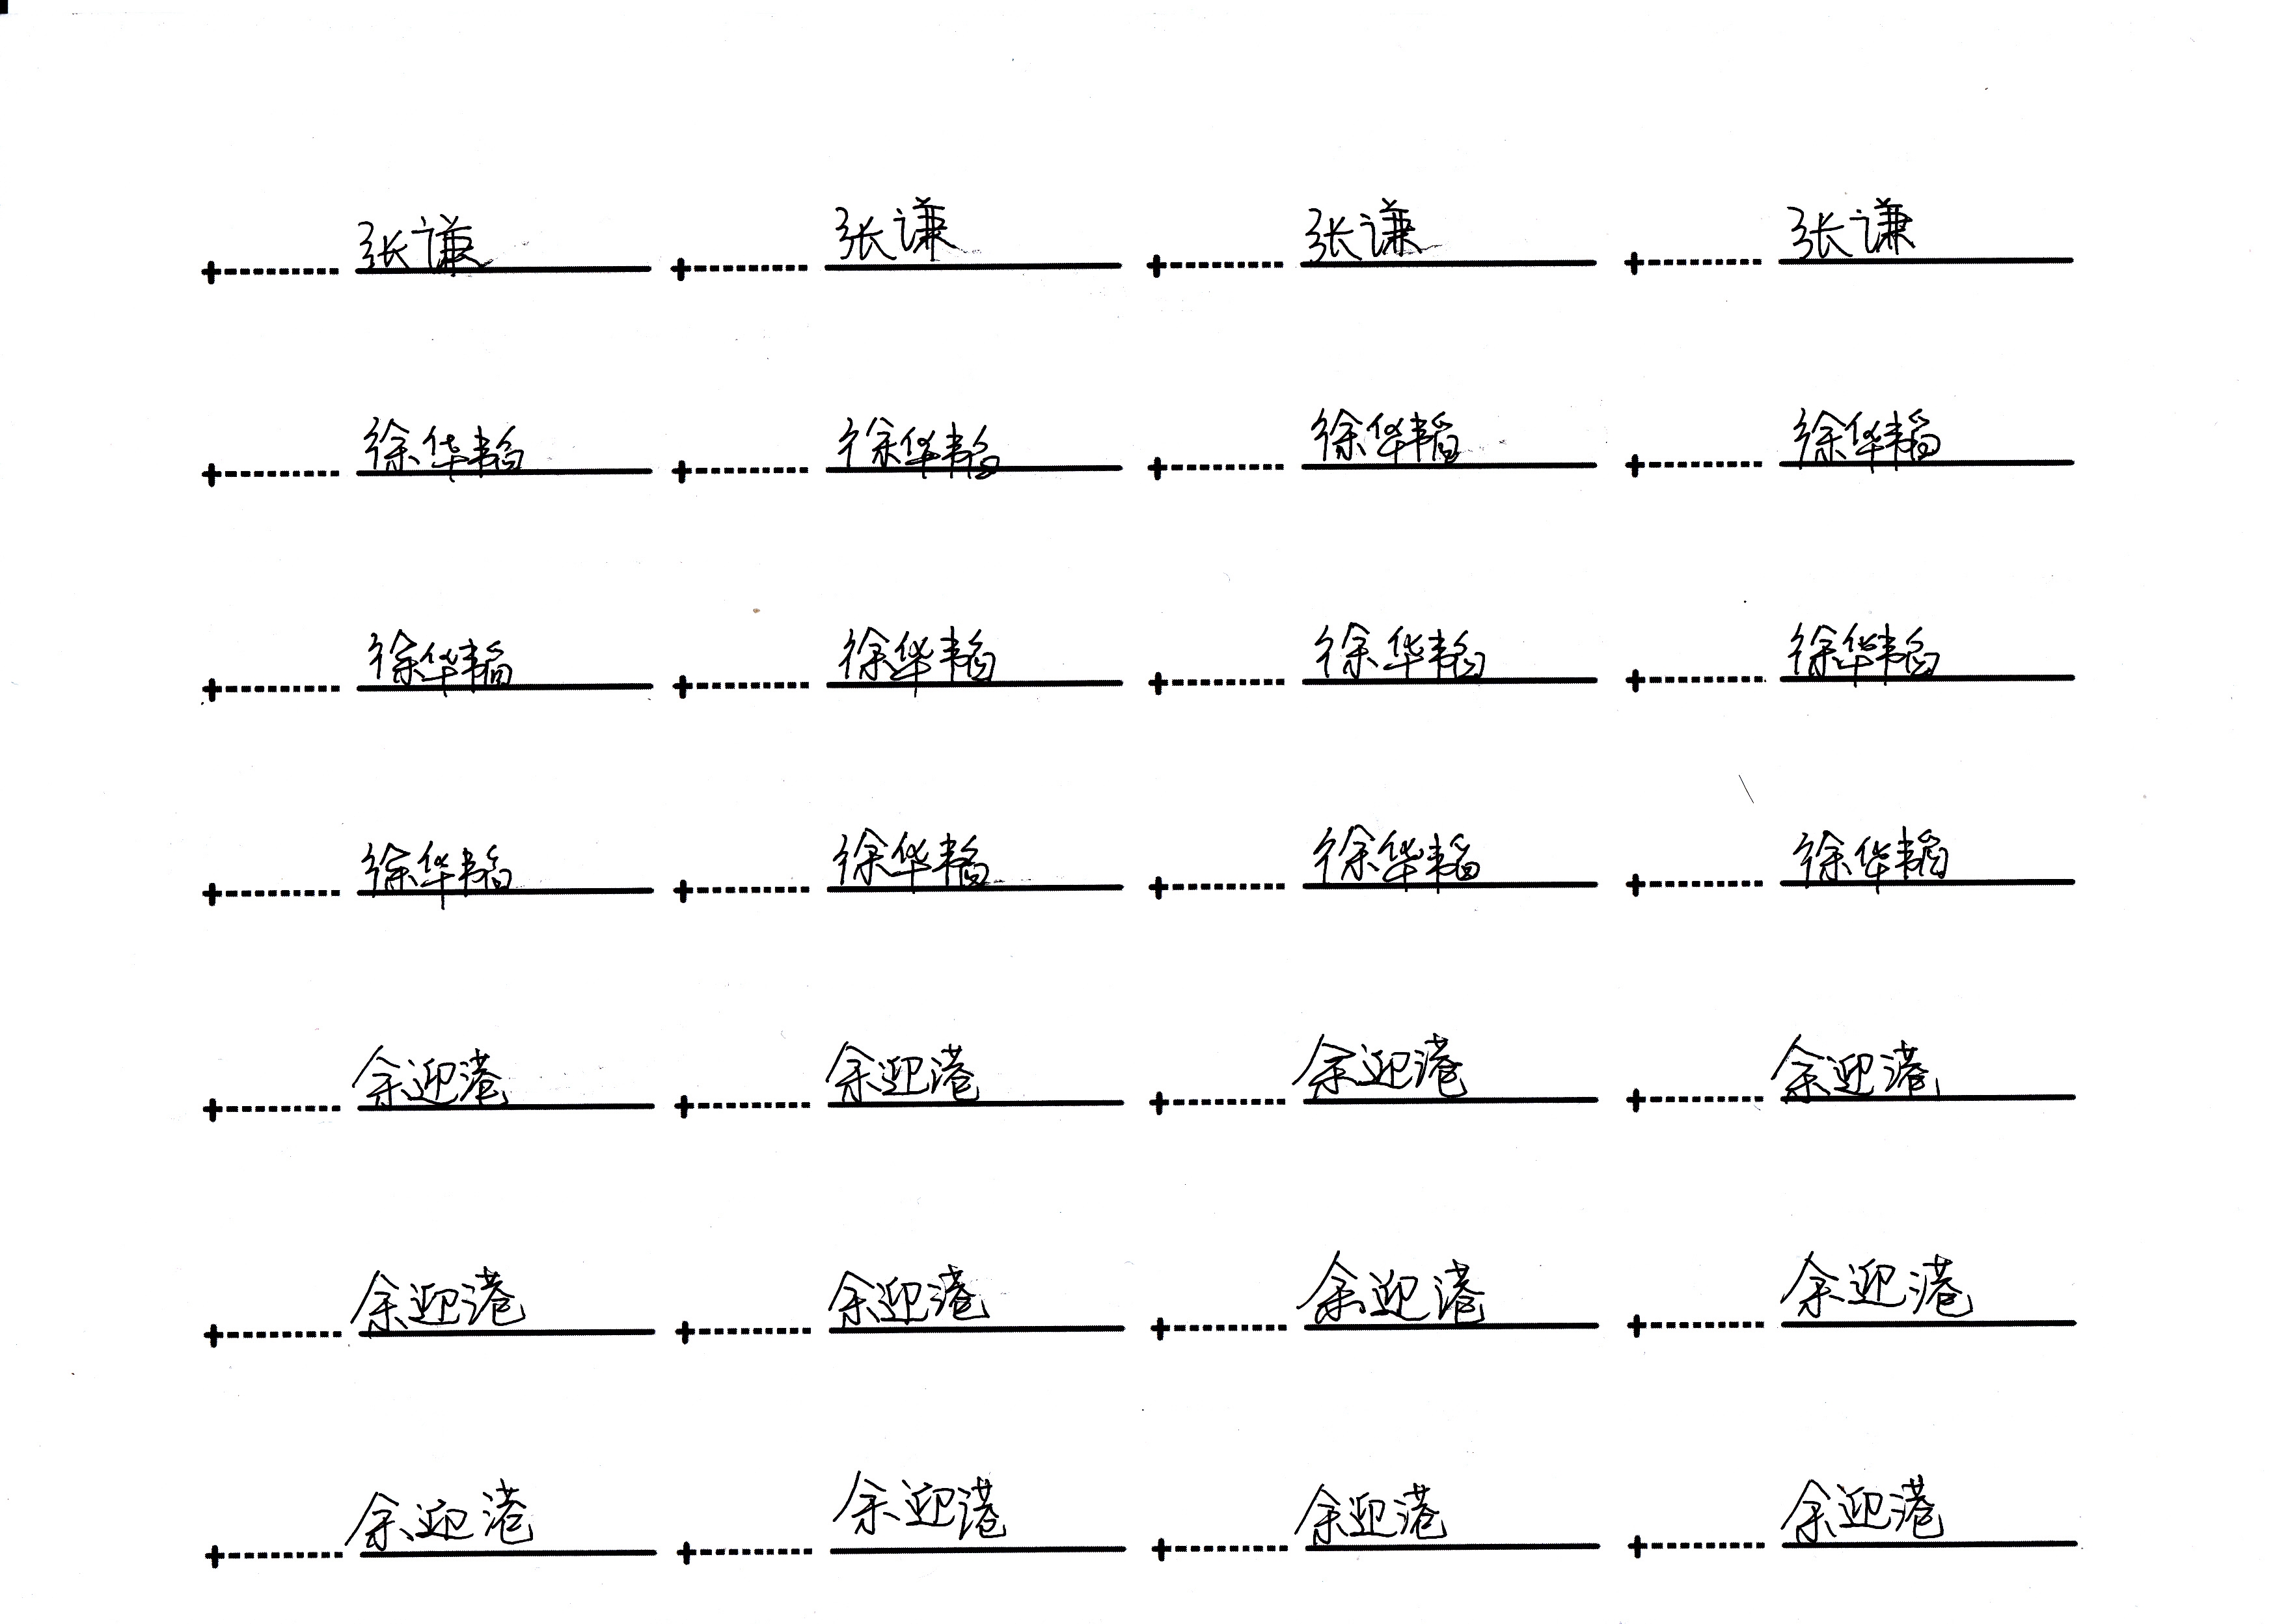 张谦 张谦 张谦 张谦
徐华韬 徐华韬 徐华韬 徐华韬
徐华韬 徐华韬 徐华韬 徐华韬
徐华韬 徐华韬 徐华韬 徐华韬
余迎港 余迎港 余迎港 余迎港
余迎港 余迎港 余迎港 余迎港
余迎港 余迎港 余迎港 余迎港